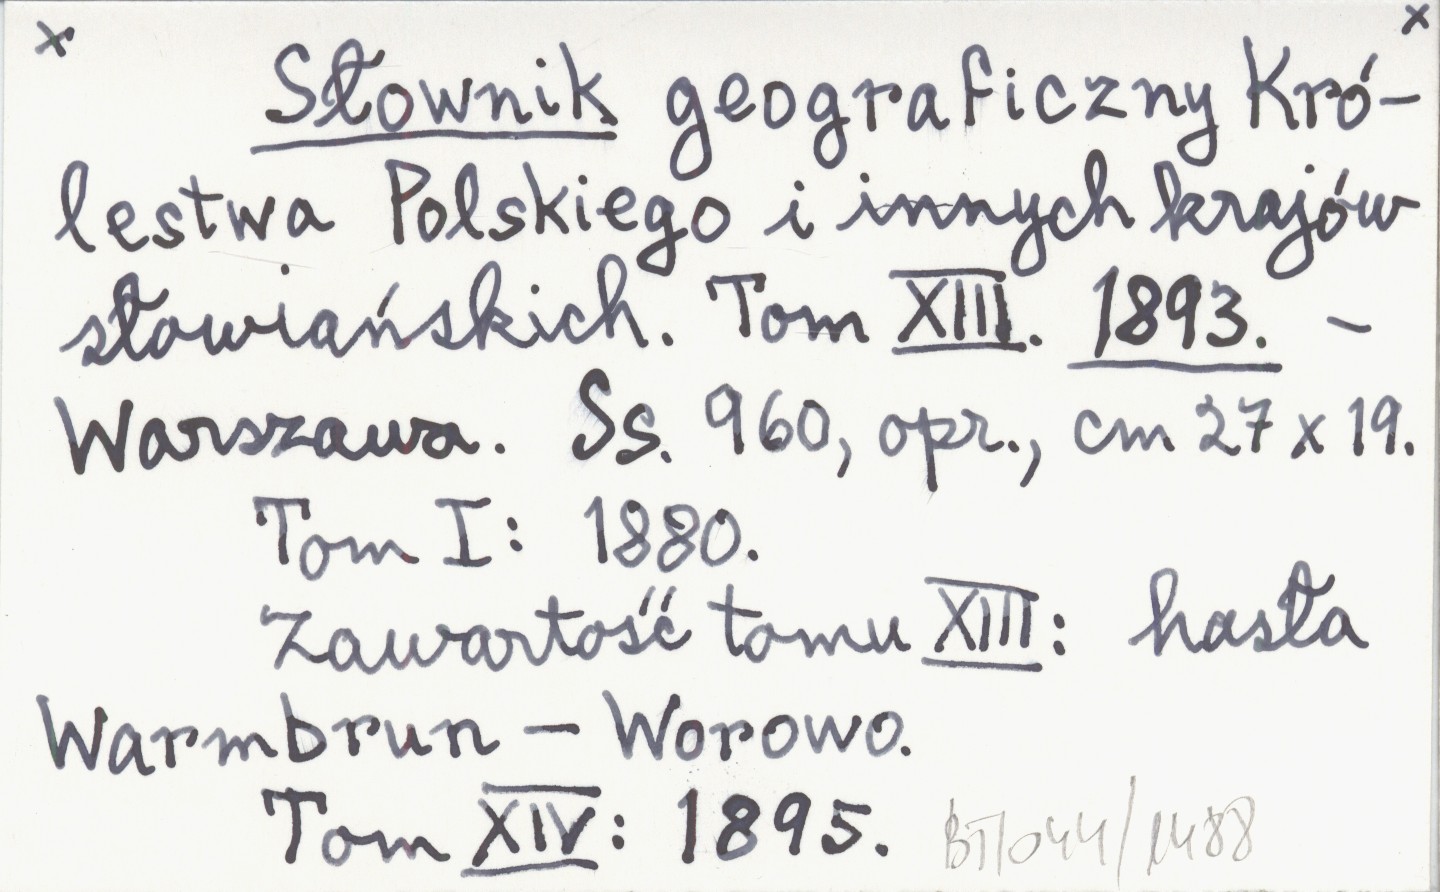 x x
Słownik geograficzny Kró-
lestwa Polskiego i innych krajów
słowiańskich. Tom XIII. 1893. -
Warszawa. Ss. 960, opr., cm 27 x 19.
Tom I: 1880.
Zawartość tomu XIII: hasła
Warmbrun - Worowo.
Tom XIV: 1895.